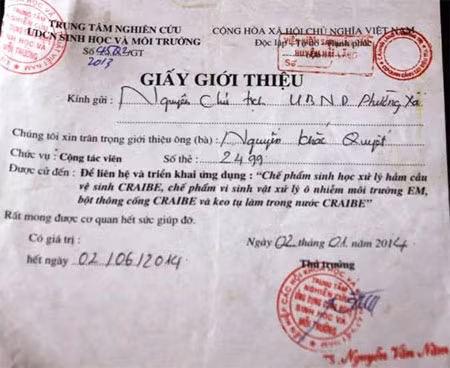 TRUNG TÂM NGHIÊN CỨU
UDCN SINH HỌC VÀ MÔI TRƯỜNG
Số /GT
2013
CỘNG HÒA XÃ HỘI CHỦ NGHĨA VIỆT NAM
Độc lập - Tự do - Hạnh phúc
GIẤY GIỚI THIỆU
Kính gửi : Nguyễn Chủ tịch UBND Phường Xã
Chúng tôi xin trân trọng giới thiệu ông (bà) : Nguyễn Khắc Quyết
Chức vụ : Cộng tác viên Số thẻ : 2499
Được cử đến : Để liên hệ và triển khai ứng dụng : "Chế phẩm sinh học xử lý hầm cầu
vệ sinh CRAIBE, chế phẩm vi sinh vật xử lý ô nhiễm môi trường EM,
bột thông cống CRAIBE và keo tụ làm trong nước CRAIBE"
Rất mong được cơ quan hết sức giúp đỡ.
Có giá trị :
hết ngày 02/06/2014
Ngày 02 tháng 01 năm 2014
Thủ trưởng
TRUNG TÂM
NGHIÊN CỨU
ỨNG DỤNG
SINH HỌC VÀ
MÔI TRƯỜNG
Nguyễn Văn Năm